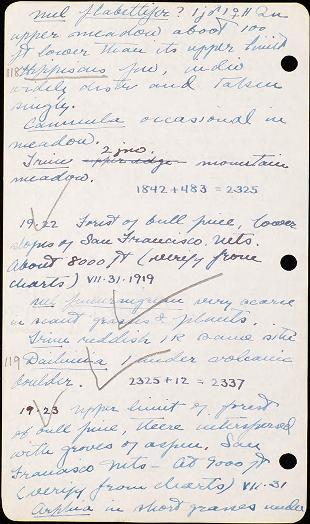 Mel flabellifer? 1 jo 19.11 in
upper meadow about 100
ft lower than its upper limit
118 Hippiscus juv, indiv
widely distr and taken
singly.
Camnula occasional in
meadow.
Trim 2 jnv. upper edge mountain
meadow.
1842 + 483 = 2325
19.22 Forest of bull pine, lower
slopes of San Francisco Mts.
About 8000 ft (verify from
charts) VII-31-1919
Mel very scarce
in scant grasses & plants.
Trim reddish 1K same site
119 Daihinia 1 under volcanic
boulder. 2325 + 12 = 2337
19.23 Upper limit of forest
of bull pine, there interspersed
with groves of aspen. San
Francisco Mts - At 9000 ft
(verify from charts) VII-31
Arphia in short grasses under